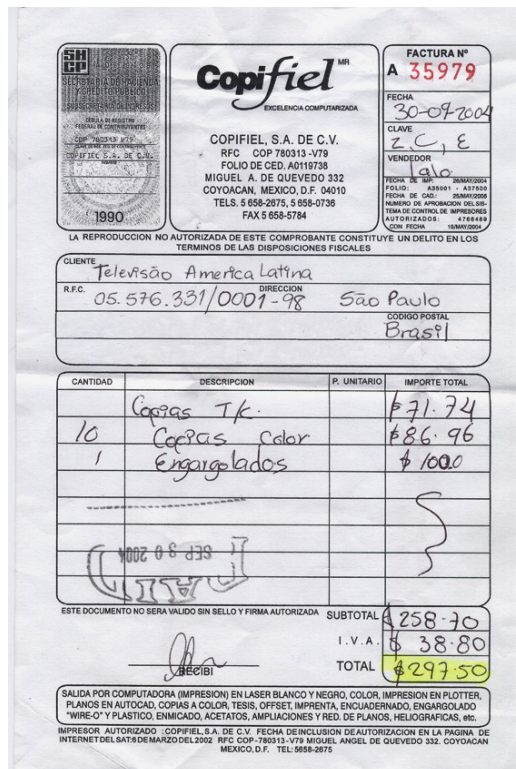 SH
CP
SECRETARIA DE HACIENDA
Y CREDITO PUBLICO
SUBSECRETARIA DE INGRESOS
CEDULA DE REGISTRO
FEDERAL DE CONTRIBUYENTES
COP 780313 V79
COPIFIEL S.A. DE C.V.
1990
Copifiel MR
EXCELENCIA COMPUTARIZADA
COPIFIEL, S.A. DE C.V.
RFC COP 780313-V79
FOLIO DE CED. A0119738
MIGUEL A. DE QUEVEDO 332
COYOACAN, MEXICO, D.F. 04010
TELS. 5 658-2675, 5 658-0736
FAX 5 658-5784
FACTURA Nº
A 35979
FECHA
30-09-2004
CLAVE
2, C, E
VENDEDOR
Lalo
FECHA DE IMP: 26/MAY/2004
FOLIO: A35001 - A37500
FECHA DE CAD.: 25/MAY/2006
NUMERO DE APROBACION DEL SIS-
TEMA DE CONTROL DE IMPRESORES
AUTORIZADOS: 4766489
CON FECHA 18/MAY/2004
LA REPRODUCCION NO AUTORIZADA DE ESTE COMPROBANTE CONSTITUYE UN DELITO EN LOS
TERMINOS DE LAS DISPOSICIONES FISCALES
CLIENTE
Televisão America Latina
R.F.C. DIRECCION
05.576.331/0001-98 São Paulo
CODIGO POSTAL
Brasil
CANTIDAD DESCRIPCION P. UNITARIO IMPORTE TOTAL
Copias T/c. $71.74
10 Copias Color $86.96
1 Engargolados $ 100.0
SEP 3 0 2004
ESTE DOCUMENTO NO SERA VALIDO SIN SELLO Y FIRMA AUTORIZADA
SUBTOTAL $ 258.70
I.V.A. $ 38.80
RECIBI
TOTAL $297.50
SALIDA POR COMPUTADORA (IMPRESION) EN LASER BLANCO Y NEGRO, COLOR, IMPRESION EN PLOTTER,
PLANOS EN AUTOCAD, COPIAS A COLOR, TESIS, OFFSET, IMPRENTA, ENCUADERNADO, ENGARGOLADO
"WIRE-O" Y PLASTICO. ENMICADO, ACETATOS, AMPLIACIONES Y RED. DE PLANOS, HELIOGRAFICAS, etc.
IMPRESOR AUTORIZADO :COPIFIEL,S.A. DE C.V. FECHA DE INCLUSION DE AUTORIZACION EN LA PAGINA DE
INTERNET DEL SAT:6 DE MARZO DEL 2002 RFC COP-780313-V79 MIGUEL ANGEL DE QUEVEDO 332. COYOACAN
MEXICO, D.F. TEL: 5658-2675